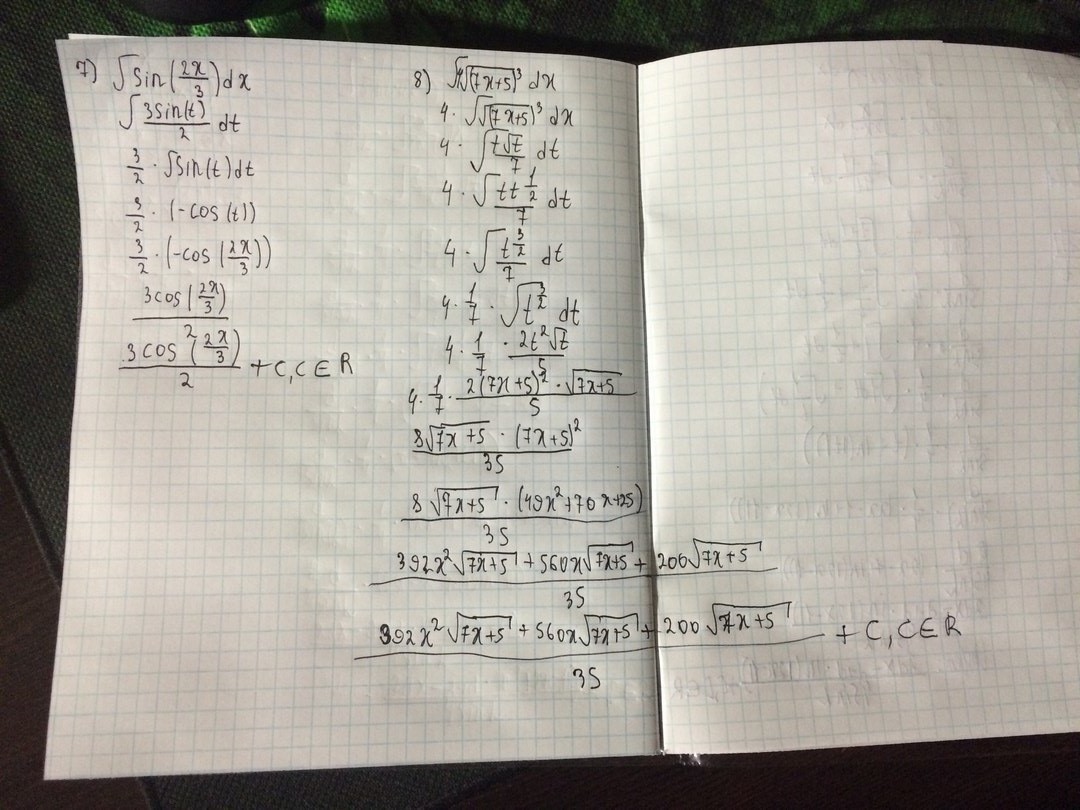 7) ∫ Sin(2x/3) dx
∫ 3Sin(t)/2 dt
3/2 · ∫Sin(t)dt
3/2 · (-cos(t))
3/2 · (-cos(2x/3))
3cos(2x/3)
3cos²(2x/3)/2 + C, C∈R
8) ∫4√(7x+5)³ dx
4 · ∫√(7x+5)³ dx
4 · ∫ t√t/7 dt
4 · ∫ tt^(1/2)/7 dt
4 · ∫ t^(3/2)/7 dt
4 · 1/7 · ∫t^(3/2) dt
4 · 1/7 · 2t²√t/5
4 · 1/7 · 2(7x+5)² · √(7x+5)/5
8√(7x+5) · (7x+5)²/35
8√(7x+5) · (49x²+70x+25)/35
392x²√(7x+5) + 560x√(7x+5) + 200√(7x+5)/35
392x²√(7x+5) + 560x√(7x+5) + 200√(7x+5)/35 + C, C∈R